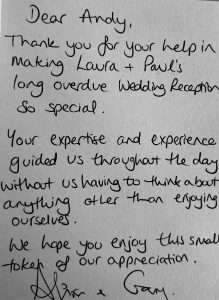 Dear Andy,
Thank you for your help in
Making Laura + Paul's
long overdue Wedding Reception
So special.
Your expertise and experience
guided us throughout the day
without us having to think about
anything other than enjoying
ourselves.
We hope you enjoy this small
token of our appreciation.
& Gary.